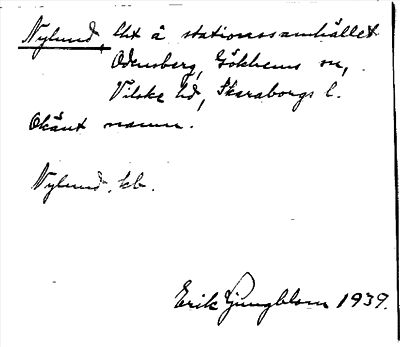 Nylund, lht å stationssamhället
Odensberg, Gökhems sn,
Vilske hd, Skaraborgs l.
Okänt namn.
Nylund, kb.
Erik Ljungblom 1939.